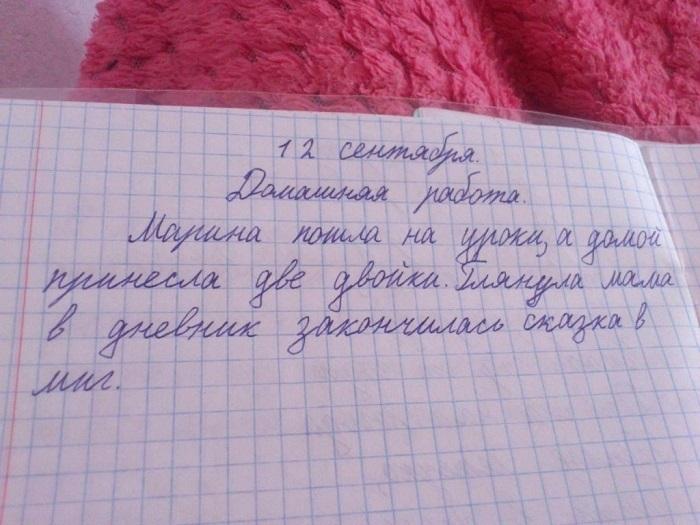 12 сентября.
Домашняя работа.
Марина пошла на уроки, а домой
принесла две двойки. Глянула мама
в дневник закончилась сказка в
миг.